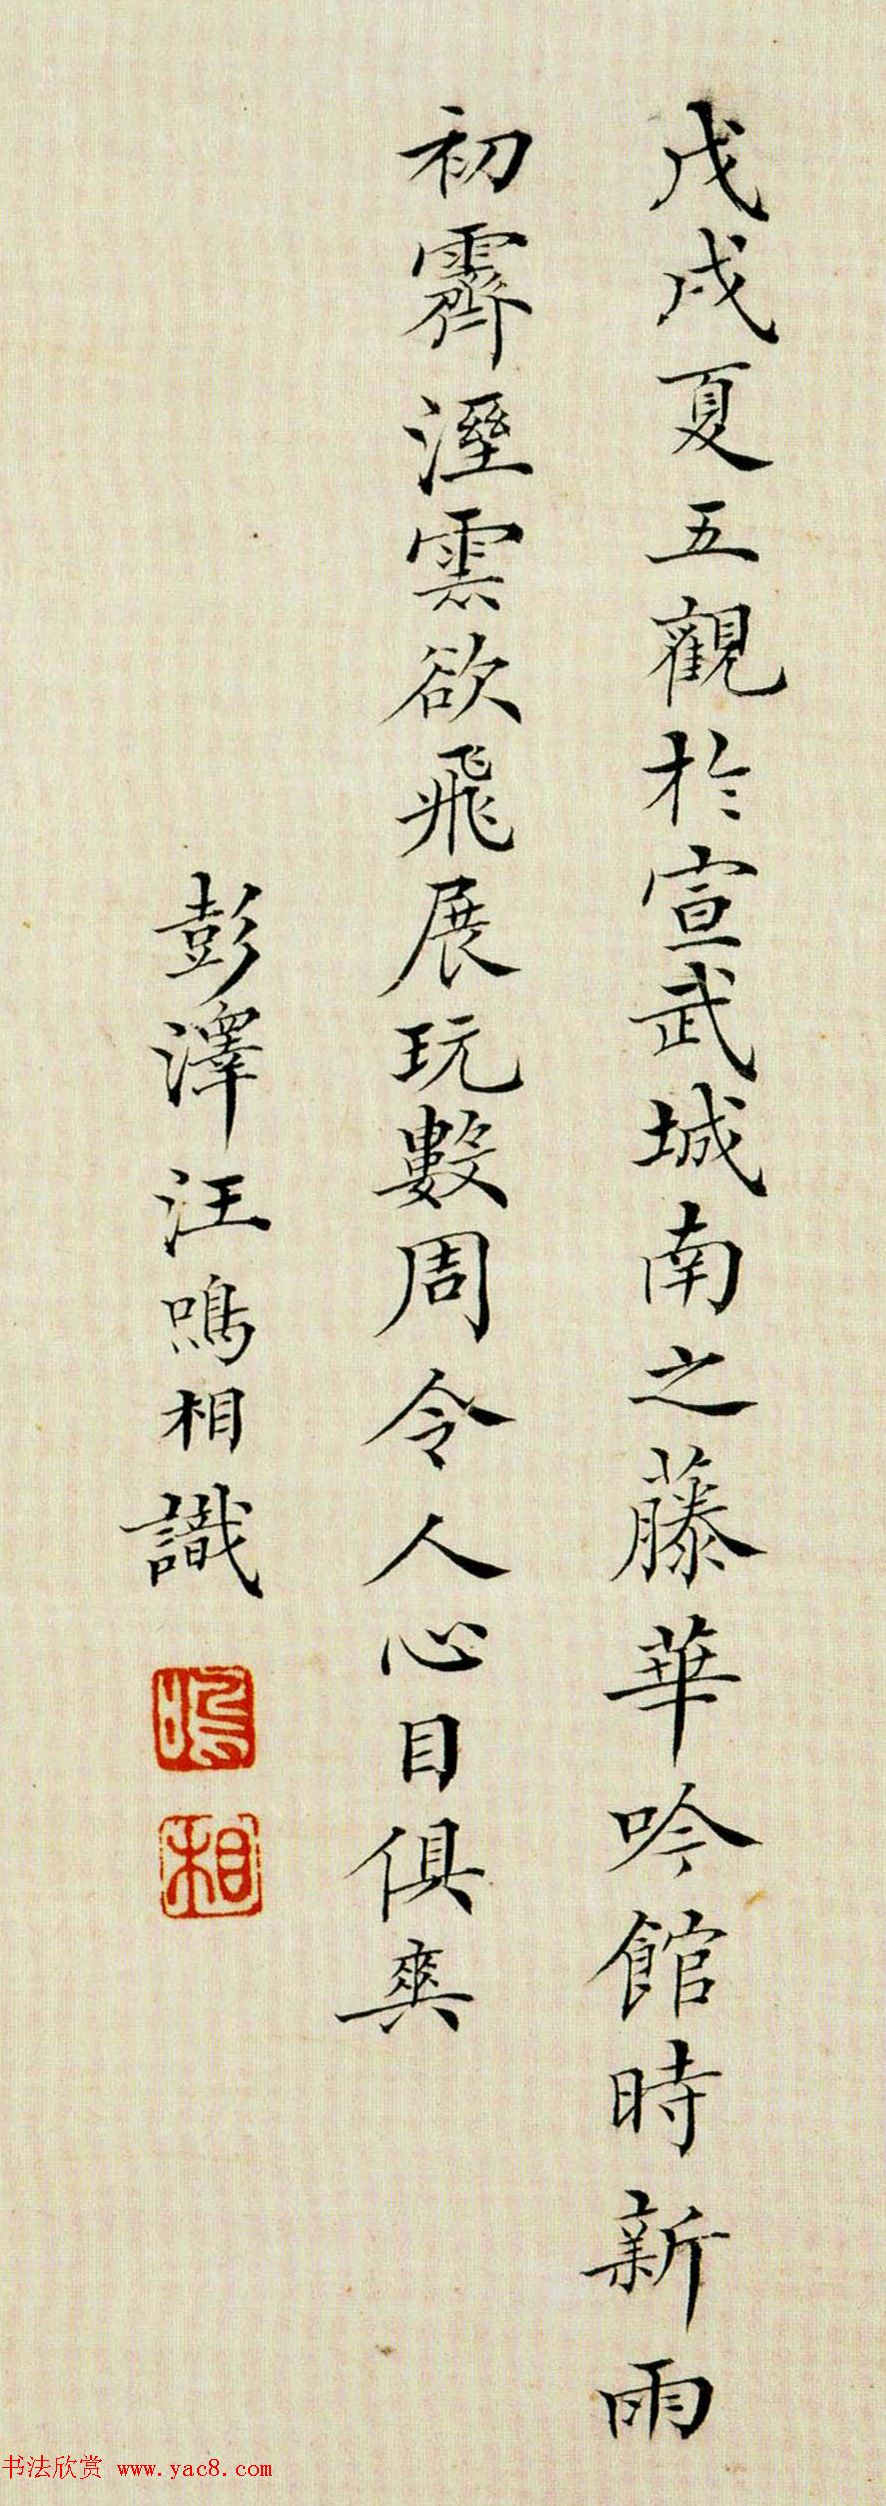 戊戌夏五觀於宣武城南之藤華吟館時新雨
初霽溼雲欲飛展玩數周令人心目俱爽
彭澤汪鳴相識
鳴
相
书法欣赏 www.yac8.com